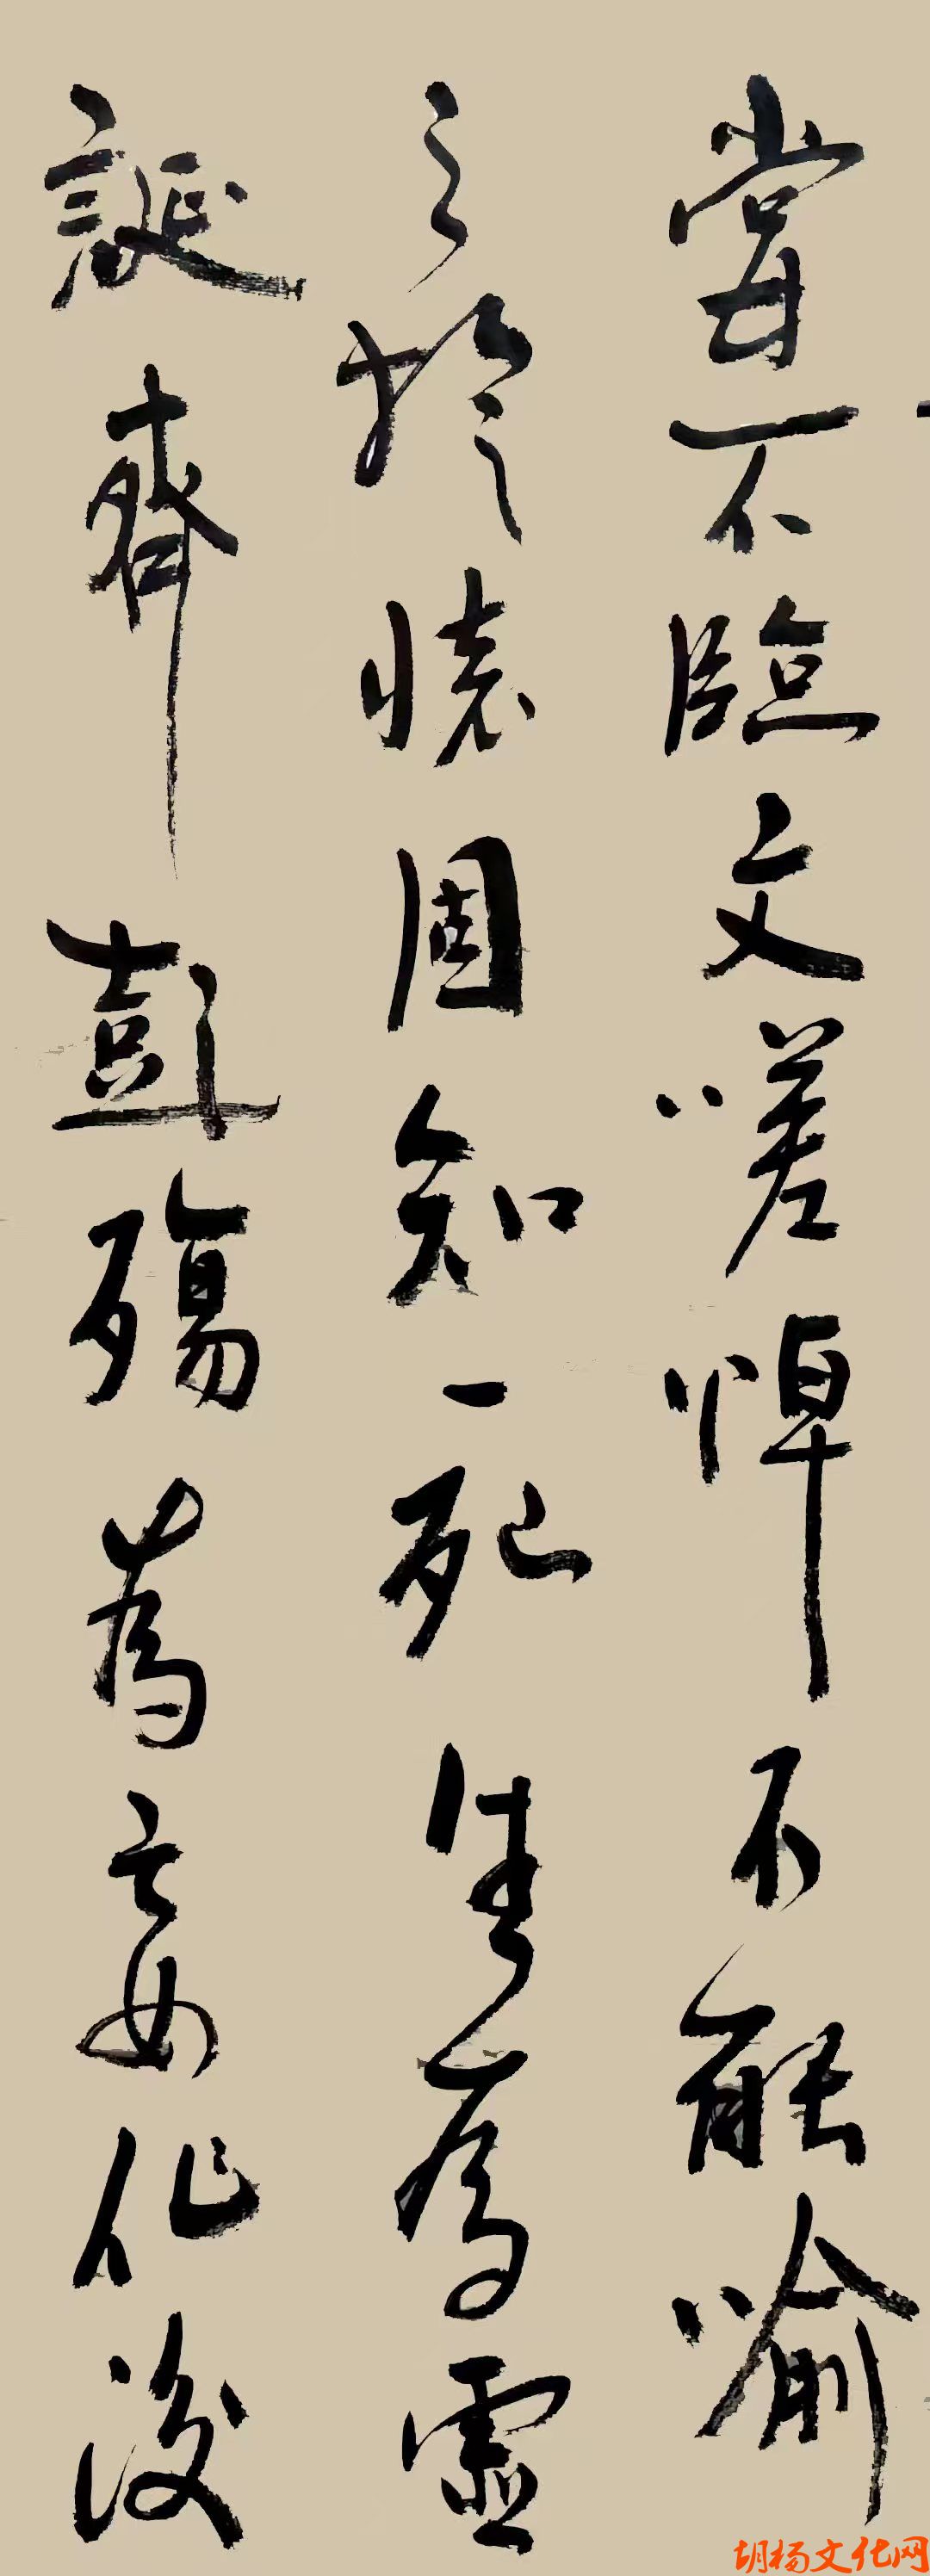 嘗不臨文嗟悼不能喻
之於懷固知一死生為虛
誕齊彭殤為妄作後
胡杨文化网